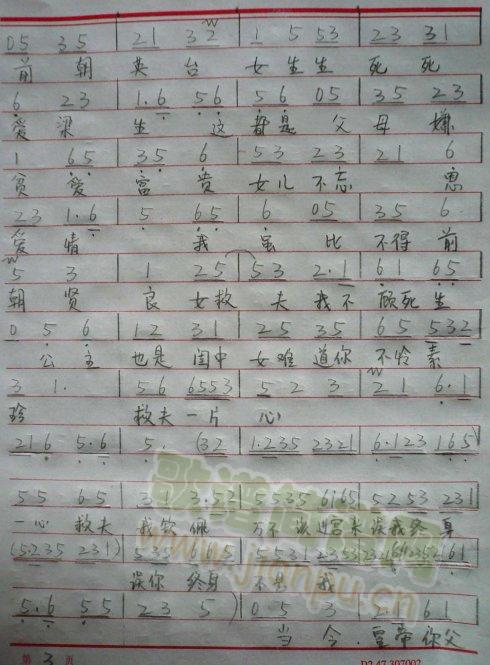 05 35 | 21 32 | 1 5 53 | 23 31
前 朝 英 台 女 生 生 死 死
6 23 | 1.6 56 | 56 05 | 35 23
爱 梁 生 这 都是 父 母 嫌
1 65 | 35 6 | 53 23 | 21 6
贫 爱 富 贵 女儿 不忘 恩
23 1.6 | 5 65 | 6 05 | 35 6
爱 情 我 虽 比 不得 前
5 3 | 1 25 | 53 2.1 | 61 65
朝 贤 良 女救 夫 我不 顾死 生
0 5 6 | 12 31 | 25 35 | 65 532
公 主 也是 闺中 女难 道你 不怜 素
3 1. | 56 6553 | 5 2 3 | 21 6.1
珍 救夫 一片 心
216 5.6 | 5. (32 | 1.235 2321 | 6.123 165
55 65 | 35 3.532 | 5535 6165 | 5253 231
一心 救夫 我钦佩 万不该进宫来误我终 身
(5.235 231) | 535 615 | 5531 2353
误你 终身 不是 我
5.6 55 | 23 5 ) | 0 5 3 | 2.1 61
当 今 皇帝 你父
歌谱简谱网
www.jianpu.cn
第 3 页
D2.47.307002